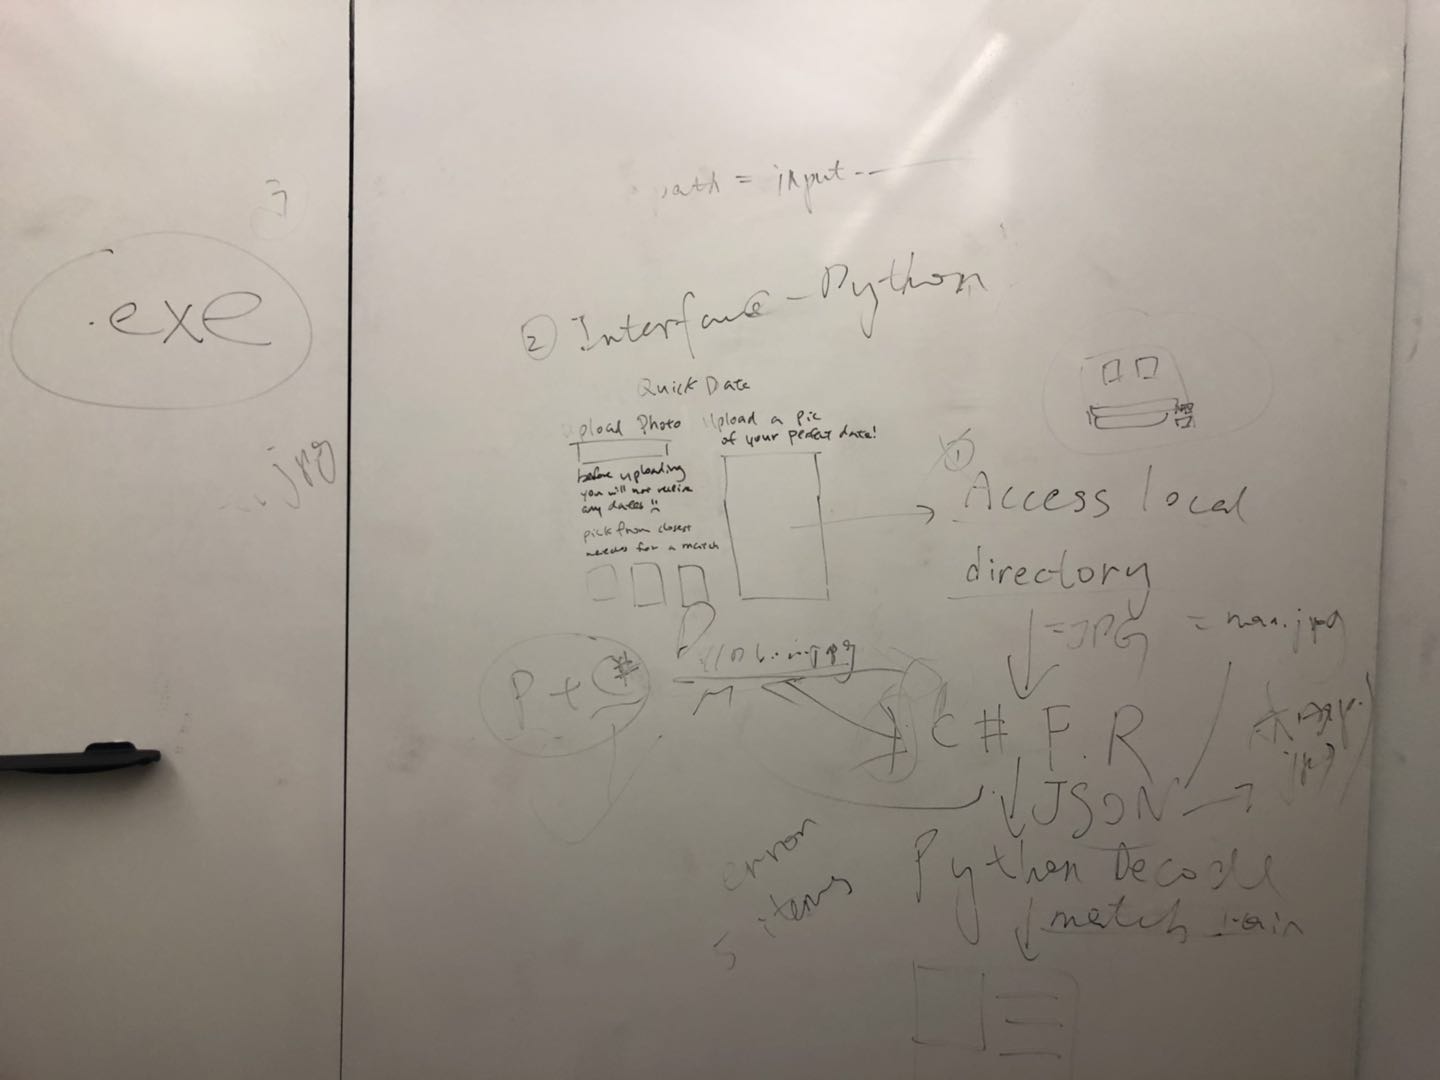 path = input
② Interface - Python
.exe
.jpg
Quick Date
Upload Photo
before uploading
you will not receive
any dates
pick from closest
needs for a match
Upload a pic
of your perfect date!
①
Access local
directory
= JPG = man.jpg
P + *
C # F.R
JSON
jpg
Python Decode
match
error
5 items